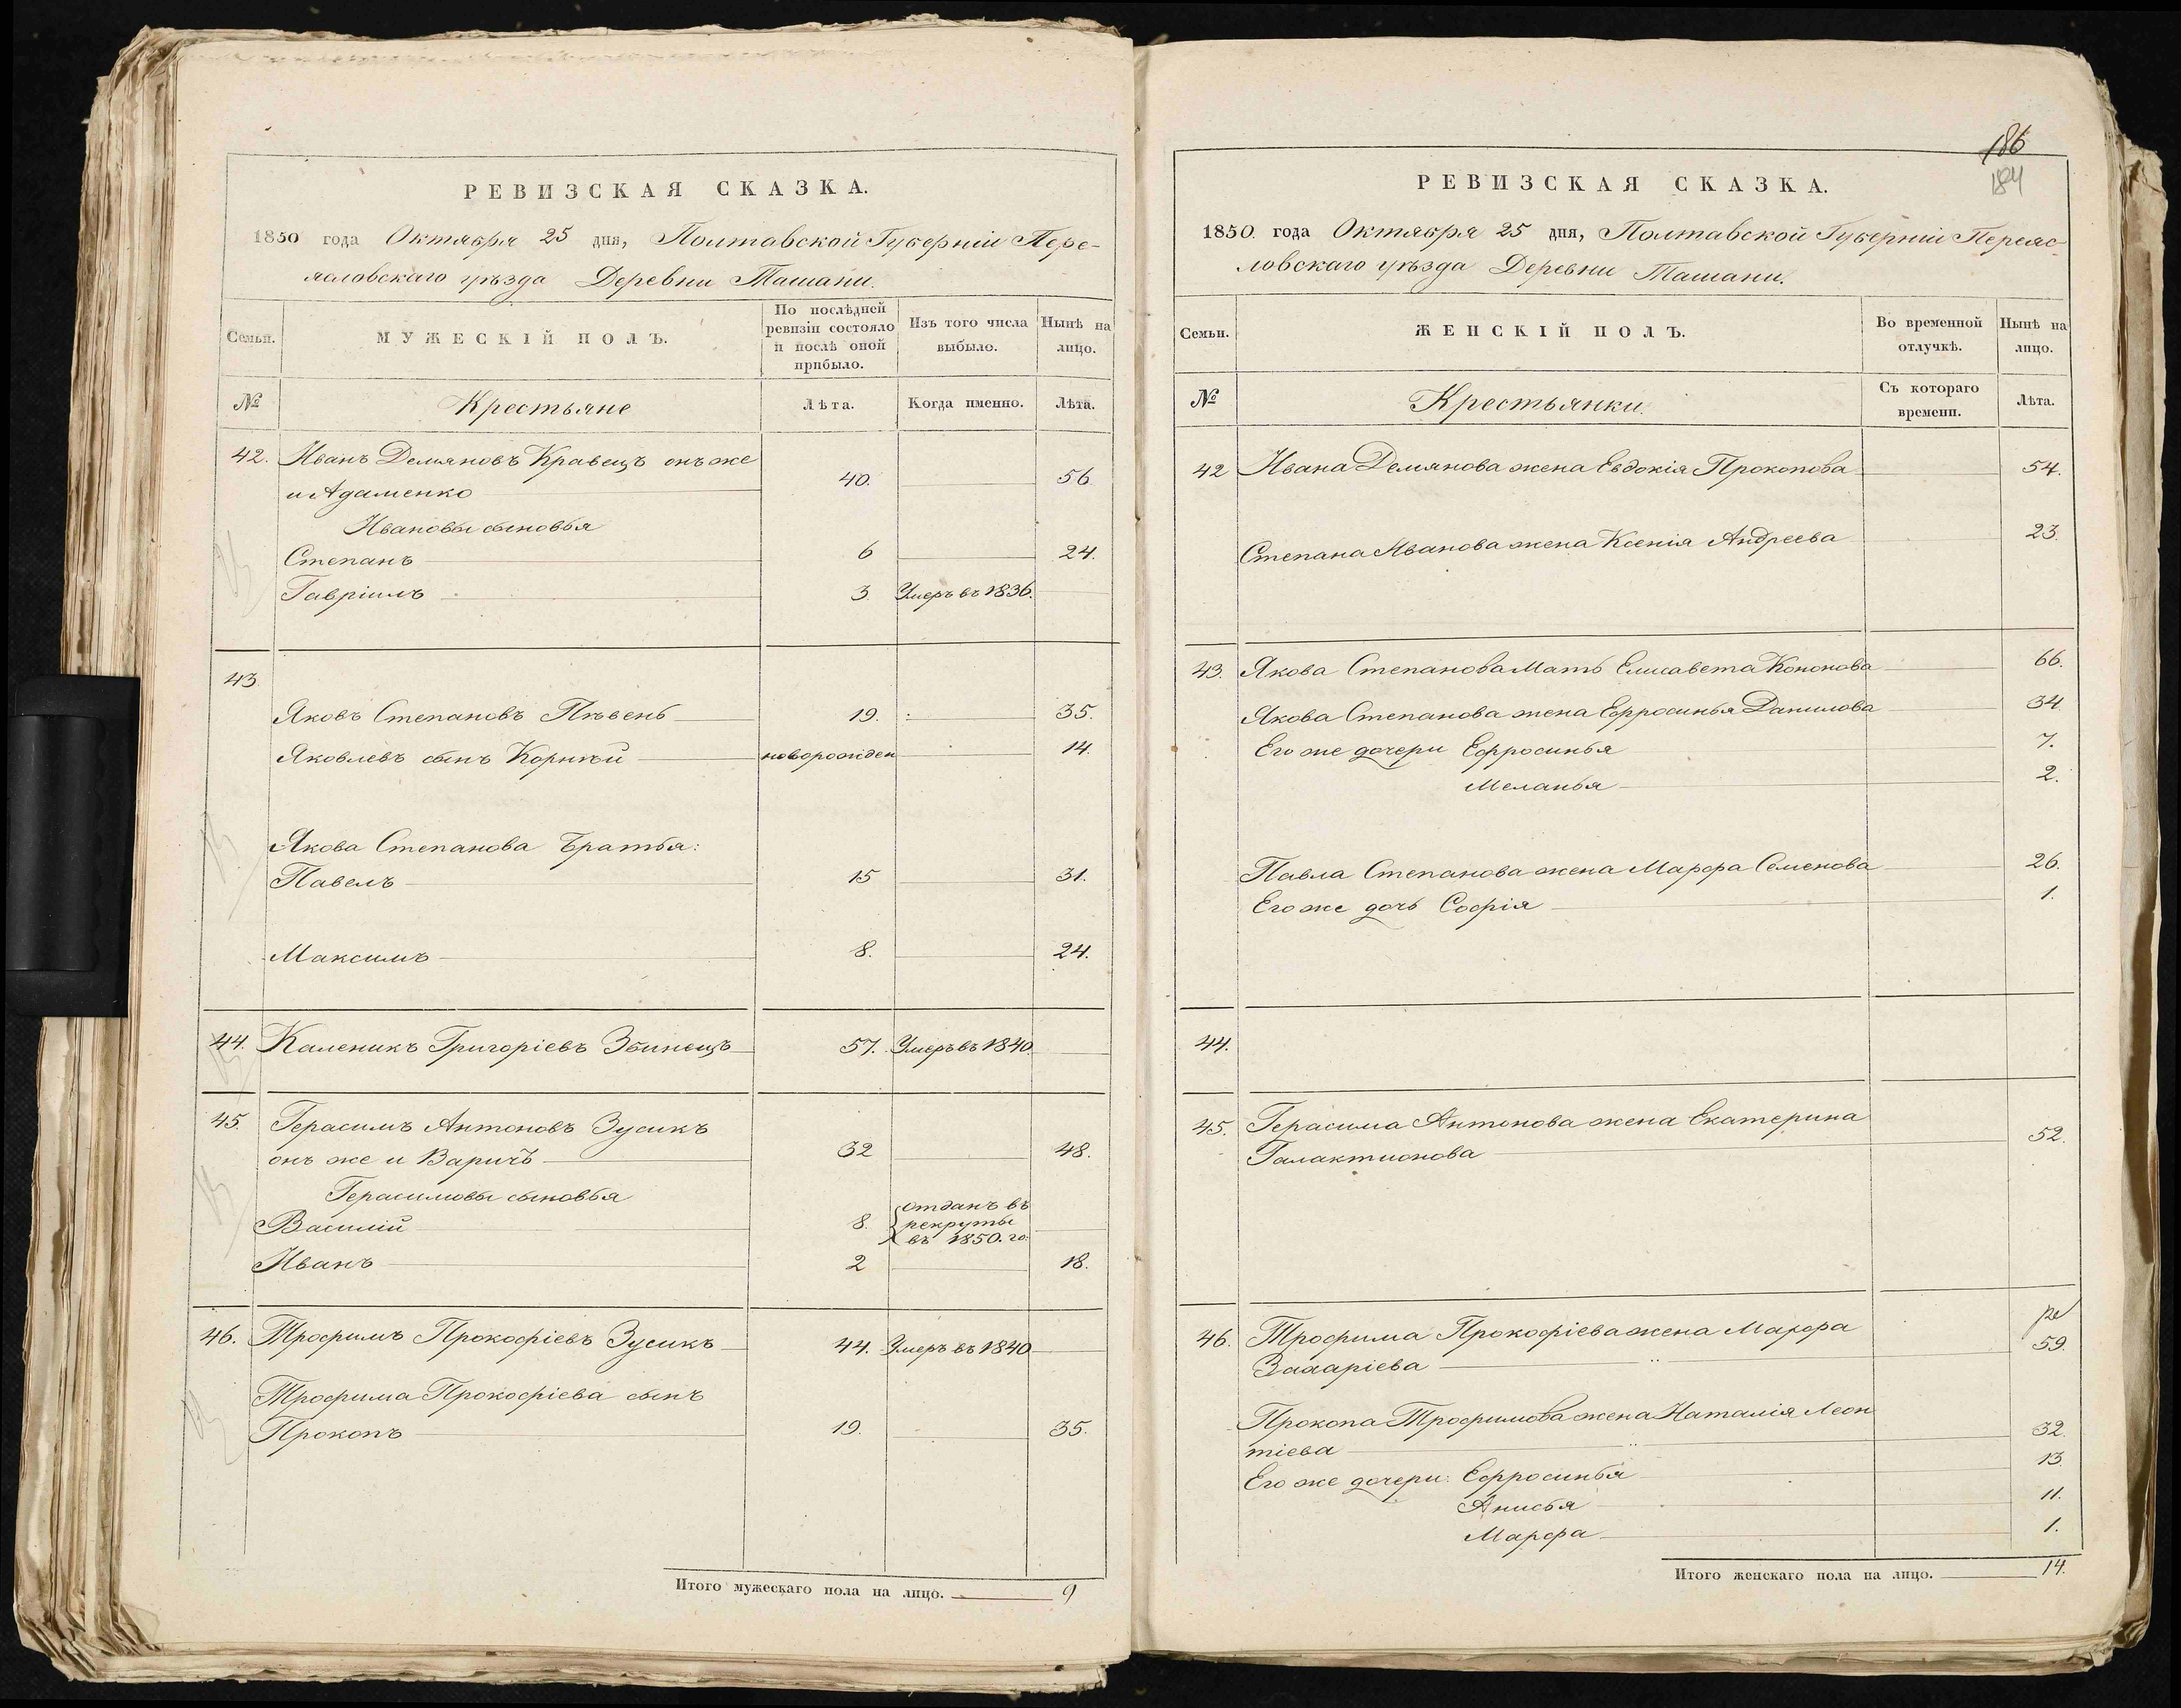 РЕВИЗСКАЯ СКАЗКА.
1850 года Октября 25 дня, Полтавской Губерніи Пере-
яаловскаго уѣзда Деревни Ташани.
Семьи.
МУЖЕСКІЙ ПОЛЪ.
По послѣдней ревизіи состояло и послѣ оной прибыло.
Изъ того числа выбыло.
Нынѣ на лицо.
№ Крестьяне Лѣта. Когда именно. Лѣта.
42. Иванъ Демяновъ Кравецъ онъ же
и Адаменко 40. 56
Ивановы сыновья
Степанъ 6 24.
Гавріилъ 3 Умеръ въ 1836.
43.
Яковъ Степановъ Пѣвень 19. 35.
Яковлевъ сынъ Корнѣй новорожден 14.
Якова Степанова Братья:
Павелъ 15 31.
Максимъ 8. 24.
44. Каленикъ Григоріевъ Збинецъ 57. Умеръ въ 1840.
45. Герасимъ Антоновъ Зусикъ
онъ же и Варичъ 32 48.
Герасимовы сыновья
Василій 8. отданъ въ
рекруты
въ 1850. го:
Иванъ 2 18.
46. Трофимъ Прокофіевъ Зусикъ 44. Умеръ въ 1840
Трофима Прокофіева сынъ
Прокопъ 19. 35.
Итого мужескаго пола на лицо. 9
186
184
РЕВИЗСКАЯ СКАЗКА.
1850. года Октября 25 дня, Полтавской Губерніи Переяс-
ловскаго уѣзда Деревни Ташани.
Семьи.
ЖЕНСКІЙ ПОЛЪ.
Во временной отлучкѣ.
Нынѣ на лицо.
№ Крестьянки. Съ котораго времени. Лѣта.
42 Ивана Демянова жена Евдокія Прокопова 54.
Степана Иванова жена Ксенія Андреева 23.
43. Якова Степанова Мать Елисавета Кононова 66.
Якова Степанова жена Ефросинья Данилова 34.
Его же дочери Ефросинья 7.
Меланья 2.
Павла Степанова жена Марфа Семенова 26.
Его же дочь Софія 1.
44.
45. Герасима Антонова жена Екатерина
Галактионова 52.
46. Трофима Прокофіева жена Марфа
Захаріева 59.
Прокопа Трофимова жена Наталія Леон
тіева 32.
Его же дочери: Ефросинья 13.
Анисья 11.
Марфа 1.
Итого женскаго пола на лицо. 14.